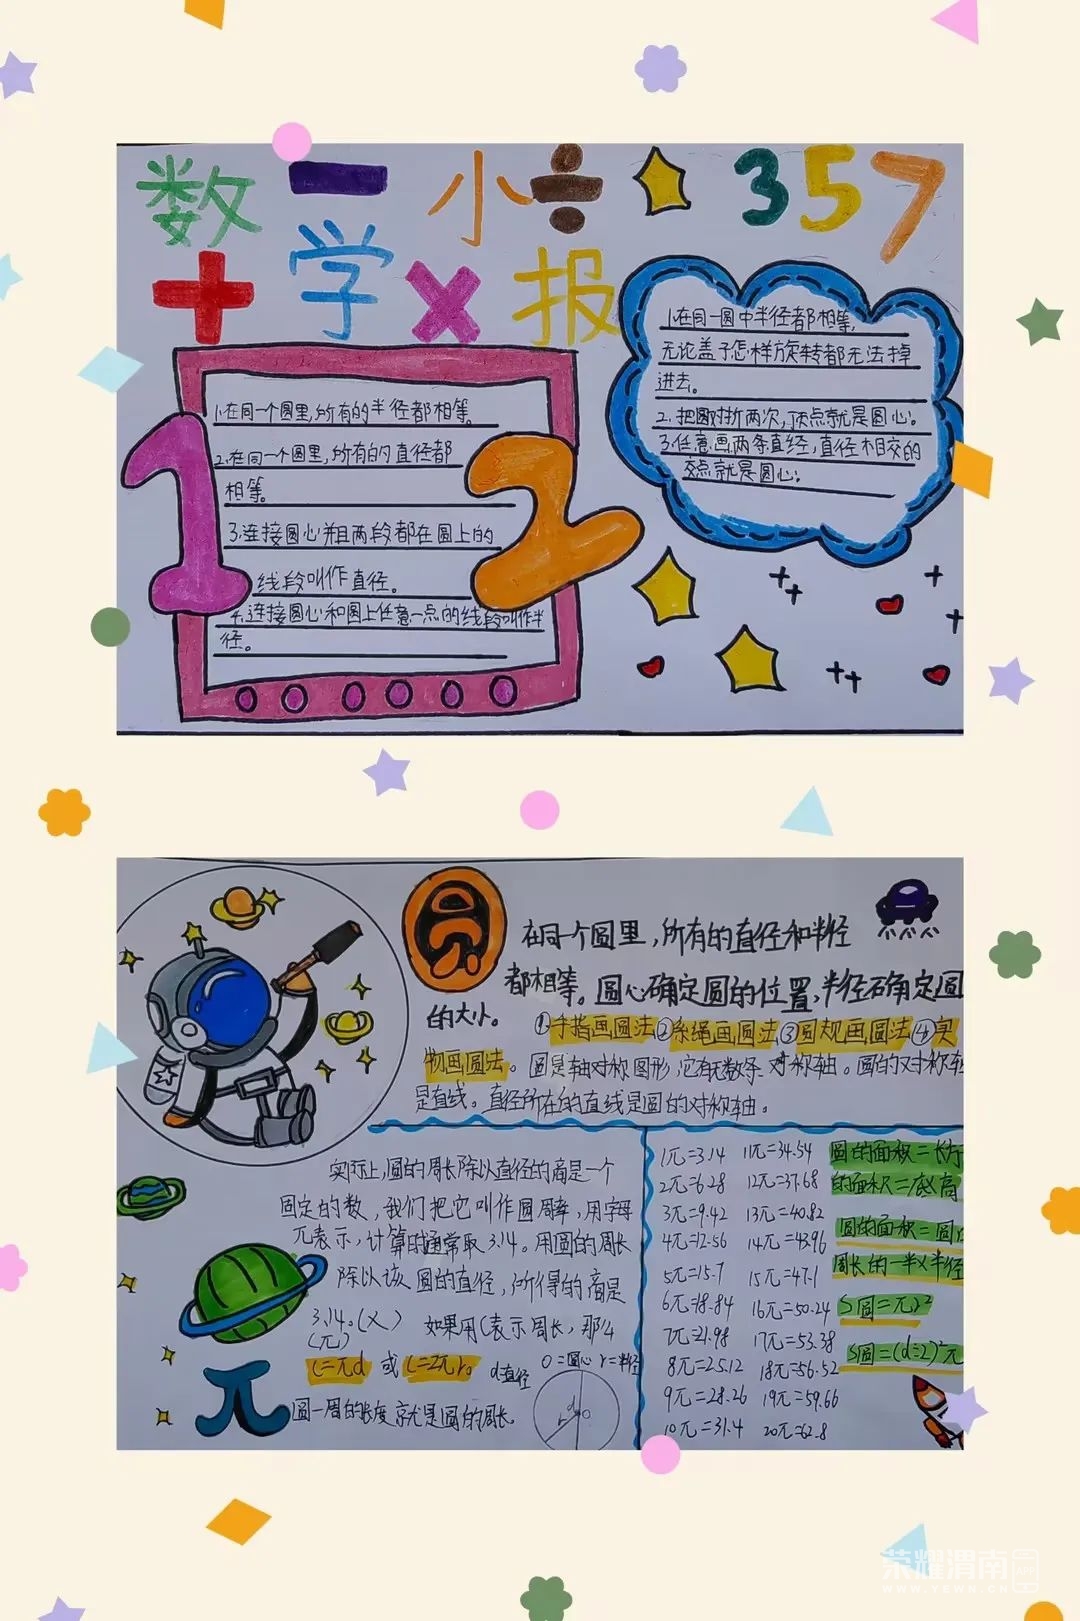 数 一 小 ÷ 357
+ 学 × 报
1.在同一个圆里,所有的半径都相等。
2.在同一个圆里,所有的直径都
相等。
3.连接圆心并且两段都在圆上的
线段叫作直径。
4.连接圆心和圆上任意一点的线段叫作半
径。
1 2
1.在同一圆中半径都相等,
无论盖子怎样旋转都无法掉
进去。
2.把圆对折两次,顶点就是圆心。
3.任意画两条直经,直径相交的
交点就是圆心。
圆
在同一个圆里,所有的直径和半径
都相等。圆心确定圆的位置,半径确定圆
的大小。
①手指画圆法②系绳画圆法③圆规画圆法④实
物画圆法。圆是轴对称图形,它有无数条对称轴。圆的对称轴
是直线。直径所在的直线是圆的对称轴。
实际上,圆的周长除以直径的商是一个
固定的数,我们把它叫作圆周率,用字母
π表示,计算时通常取3.14。用圆的周长
除以该圆的直径,所得的商是
3.14。(×)
(π)
如果用C表示周长,那么
C=πd 或 C=2πr。
d直径
O=圆心 r=半径
圆一周的长度就是圆的周长。
π
d
r
O
1π=3.14 11π=34.54
2π=6.28 12π=37.68
3π=9.42 13π=40.82
4π=12.56 14π=43.96
5π=15.7 15π=47.1
6π=18.84 16π=50.24
7π=21.98 17π=53.38
8π=25.12 18π=56.52
9π=28.26 19π=59.66
10π=31.4 20π=62.8
圆的面积=长方
的面积=底×高
圆的面积=圆
周长的一半×半径
S圆=πr²
S圆=(d÷2)²π
荣耀渭南
APP
WWW.YEWN.CN